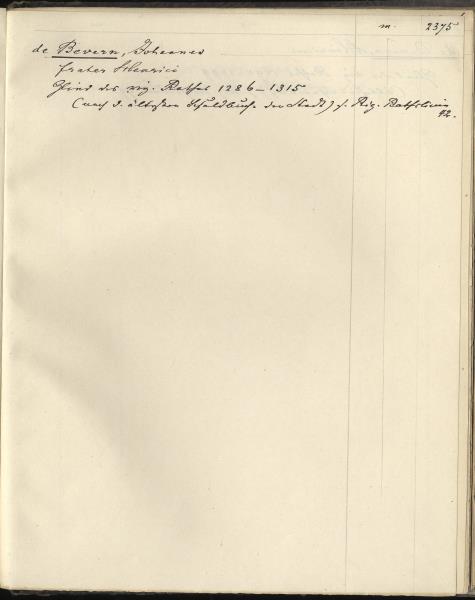 m. 2375
de Bevern, Johannes
frater Henrici
Glied des rig. Rathes 1286–1315
(nach d. ältesten Schuldbuch der Stadt) s. Rig. Rathslinie
42.